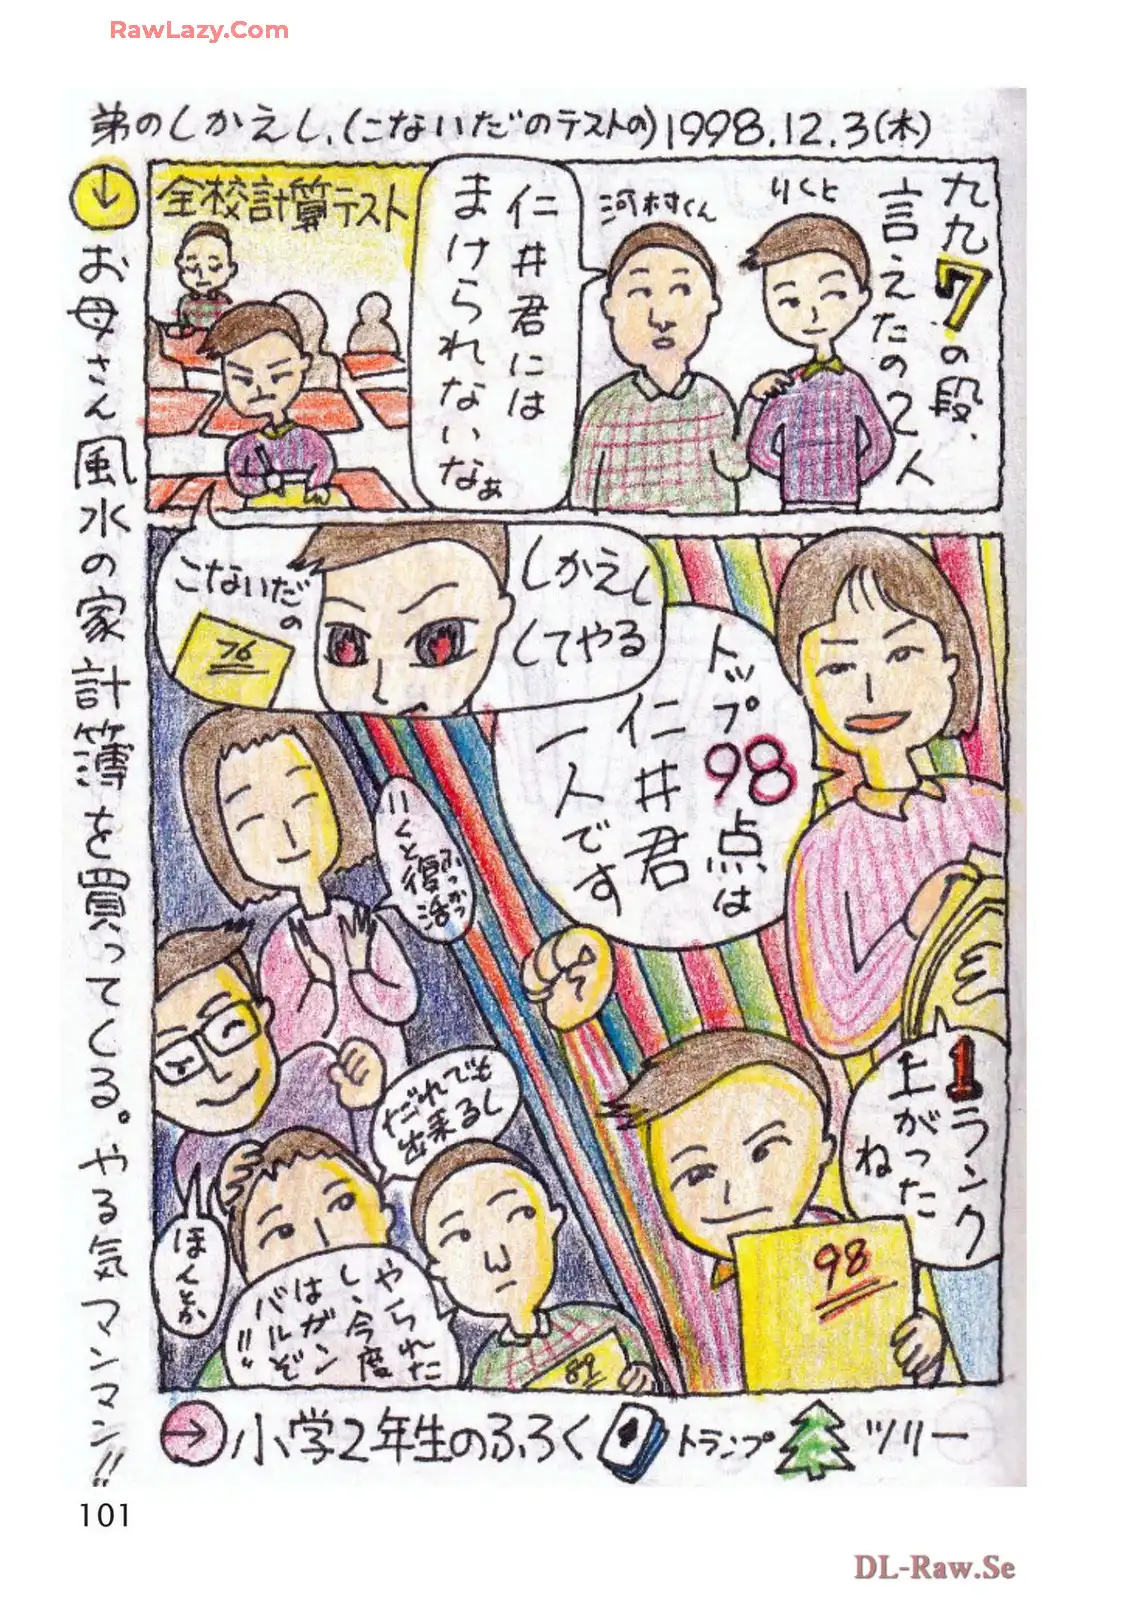 RawLazy.Com
弟のしかえし、(こないだのテストの)1998.12.3(木)
九九7の段、
言えたの2人
りくと
河村くん
仁井君には
まけられないなぁ
全校計算テスト
しかえし
してやる
こないだの
76
トップ98点は
仁井君
一人です
りくと復活
ふっかつ
1ランク
上がった
ね
98
だれでも
出来るし
ほんとか
やられた
し、今度
はガン
バルぞ
!!
89
↓お母さん風水の家計簿を買ってくる。やる気マンマン!!
→小学2年生のふろくトランプツリー
101
DL-Raw.Se